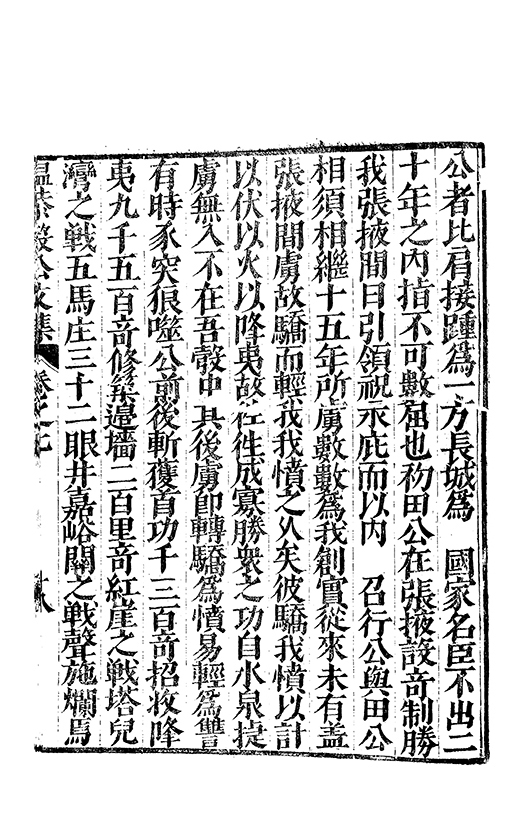 公者比肩接踵爲一方長城爲　國家名臣不出二
十年之內指不可數屈也初田公在張掖設竒制勝
我張掖間日引領祝永庇而以內　召行公與田公
相須相繼十五年所虜數數爲我創實從來未有蓋
張掖間虜故驕而輕我我憤之久矣彼驕我憤以計
以伏以火以降夷故徃徃成寡勝衆之功自水泉捷
虜無入不在吾彀中其後虜即轉驕爲憤易輕爲讐
有時豕突狼噬公前後斬獲首功千三百竒招收降
夷九千五百竒修築邊墻二百里竒紅崖之戰塔兒
灣之戰五馬庄三十二眼井嘉峪關之戰聲施爛焉
溫恭毅公文集　卷之七　十八